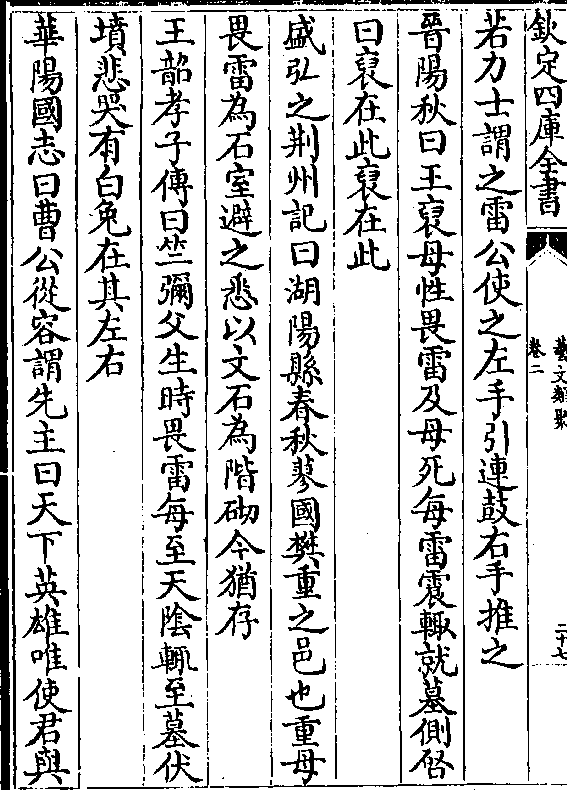 欽定四庫全書
藝文類聚
卷二
二十七
若力士謂之雷公使之左手引連鼓右手推之
晉陽秋曰王裒母性畏雷及母死每雷震輙就墓側啓
曰裒在此裒在此
盛弘之荆州記曰湖陽縣春秋蓼國樊重之邑也重母
畏雷為石室避之悉以文石為階砌今猶存
王韶孝子傳曰竺彌父生時畏雷每至天隂輙至墓伏
墳悲哭有白兔在其左右
華陽國志曰曹公從容謂先主曰天下英雄唯使君與